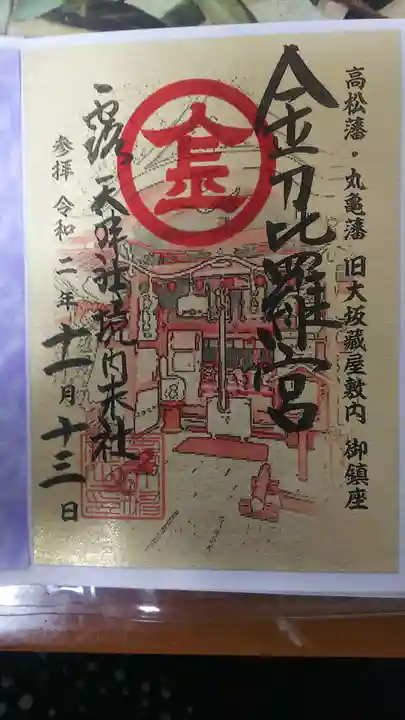 高松藩・丸亀藩 旧大坂蔵屋敷内 御鎮座
金刀毘羅宮
金
露天神社境内末社
参拝 令和二年十一月十三日